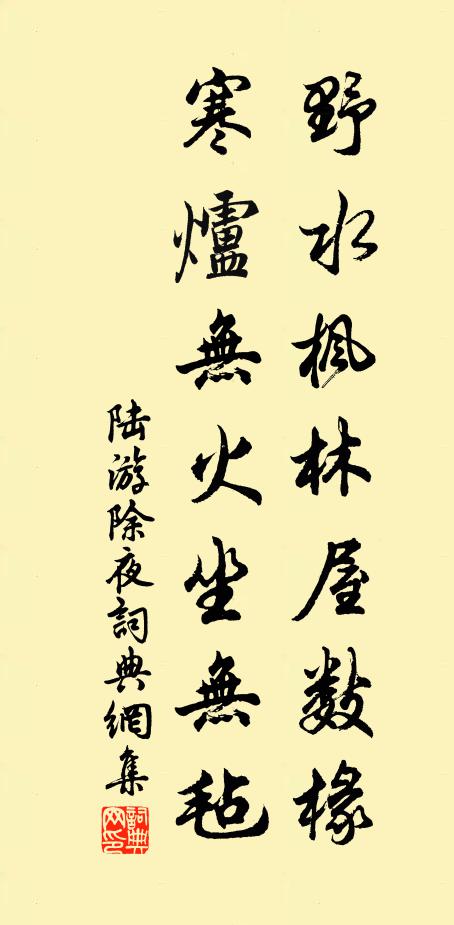 野水枫林屋数椽
寒爐無火坐無毡
陆游除夜詞典網集
詞典网印